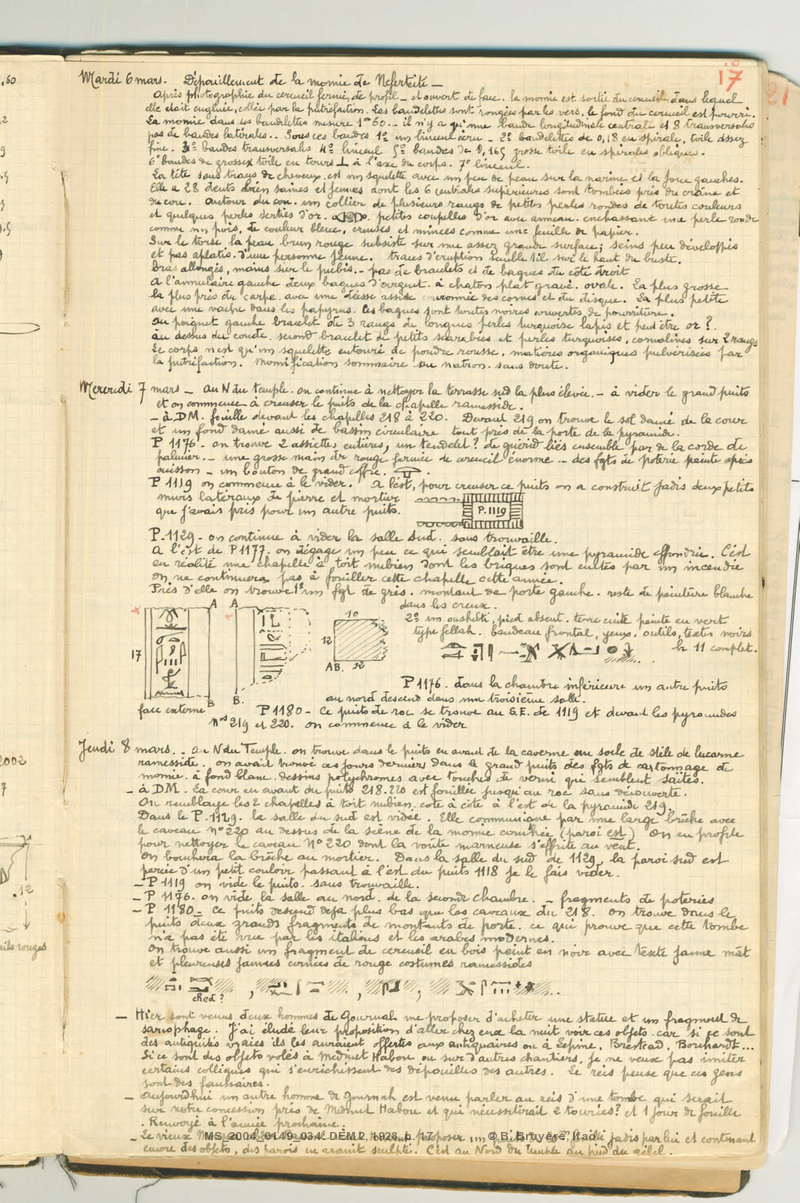 17
Mardi 6 mars. Dépouillement de la momie de Nefertiti –
Après photographie du cercueil fermé, de profil – et ouvert de face. la momie est sortie du cercueil dans lequel
elle était engluée, collée par la putréfaction. Les bandelettes sont rongées par les vers, le fond du cercueil est pourri.
La momie dans ses bandelettes mesure 1m60... il n'y a qu'une bande longitudinale centrale et 8 transversales
pas de bandes latérales.. Sous ces bandes 1º un linceul écru – 2º bandelettes de 0,18 en spirale, toile assez
fine. 3º bandes transversales 4º linceul 5º bandes de 0,165 grosse toile en spirales obliques.
6º bandes de grosse toile en tours ⊥ à l'axe du corps. 7º linceul.
La tête sans traces de cheveux, est un squelette avec un peu de peau sur la narine et la joue gauches.
Elle a 28 dents bien saines et jeunes dont les 6 centrales supérieures sont tombées près du crâne et
du cou. Autour du cou. un collier de plusieurs rangs de petites perles rondes de toutes couleurs
et quelques perles serties d'or. petites coupelles d'or avec anneau. enchassant une perle ronde
comme un pois, de couleur bleue, creuses et minces comme une feuille de papier.
Sur le torse la peau brun rouge subsiste sur une assez grande surface; seins peu développés
et pas aplatis. d'une personne jeune. traces d'éruption semble t'il sur le haut du buste.
bras allongés, mains sur le pubis. – pas de bracelets et de bagues du côté droit
A l'annulaire gauche deux bagues d'argent. à chaton plat gravé. ovale. La plus grosse
la plus près du carpe. avec une déesse assise couronnée des cornes et du disque. La plus petite
avec une vache dans les papyrus. les bagues sont toutes noires couvertes de pourriture.
Au poignet gauche bracelet de 3 rangs de longues perles turquoise lapis et peut être or ?
au dessus du coude. second bracelet de petits scarabées et perles turquoises, cornalines sur 2 rangs
Le corps n'est qu'un squelette entouré de poudre rousse, matières organiques pulvérisées par
la putréfaction. Momification sommaire au natron. sans doute.
Mercredi 7 mars – Au N du temple. on continue à nettoyer la terrasse sud la plus élevée. – à vider le grand puits
et on commence à creuser le puits de la chapelle ramesside.
– à DM. fouille devant les chapelles 218 à 220. Devant 219 on trouve le sol damé de la cour
et un fond damé aussi de bassin circulaire tout près de la porte de la pyramide.
P 1176 – on trouve 2 assiettes entières, un liés ensemble par de la corde de
palmier. – une grosse main de rouge fermée de cercueil énorme – des fgts de poterie peinte après
cuisson – un bouton de grand coffre.
P 1119 on commence à le vider. A l'est, pour creuser ce puits on a construit jadis deux petits
murs latéraux de pierre et mortier
que j'avais pris pour un autre puits.
P. 1119
P. 1129 – on continue à vider la salle sud. sans trouvaille.
A l'est de P 1177. on dégage un peu ce qui semblait être une pyramide effondrée. C'est
en réalité une chapelle à toit nubien dont les briques sont cuites par un incendie
On ne continuera pas à fouiller cette chapelle cette année.
Près d'elle on trouve 1º un fgt de grès. montant de porte gauche. reste de peinture blanche
dans les creux.
A A
17
B B.
face externe
10
12
AB. 12
2º un oushebti, pied absent. terre cuite peinte en vert
type fellah. bandeau frontal, yeux. outils, textes noirs
h 11 complet.
P 1176. dans la chambre inférieure un autre puits
au nord descend dans une troisième salle.
P 1180 – Ce puits de roc se trouve au S.E. de 1119 et devant les pyramides
nos 219 et 220. on commence à le vider
Jeudi 8 mars. – au N du Temple. on trouve dans le puits en avant de la caverne un socle de stèle de lucarne
ramesside. on avait trouvé ces jours derniers dans le grand puits des fgts de cartonnage de
momie. à fond blanc. dessins polychromes avec touches de verni qui semblent saïtes.
– à DM. La cour en avant du puits 218.220 est fouillée jusqu'au roc sans découverte.
On remblaye les 2 chapelles à toit nubien. côte à côte à l'est de la pyramide 219.
Dans le P. 1129. la salle du sud est vidée. Elle communique par une large brèche avec
le caveau nº 220 au dessus de la scène de la momie couchée (paroi est) On en profite
pour nettoyer le caveau Nº 220 dont la voûte marneuse s'effrite au vent.
On bouchera la brèche au mortier. Dans la salle du sud de 1129, la paroi sud est
percée d'un petit couloir passant à l'est du puits 1118 je le fais vider.
– P 1119 on vide le puits. sans trouvaille.
– P 1176. on vide la salle au nord. de la seconde chambre. – fragments de poteries
– P 1180 – ce puits descend déjà plus bas que les caveaux du 218. On trouve dans le
puits deux grands fragments de montants de porte. ce qui prouve que cette tombe
n'a pas été vue par les italiens et les arabes modernes.
On trouve aussi un fragment de cercueil en bois peint en noir avec texte jaune mat
et pleureuses jaunes cernées de rouge costumes ramessides
ched ?
– Hier sont venus deux hommes de Gournah me proposer d'acheter une statue et un fragment de
sarcophage. J'ai éludé leur proposition d'aller chez eux la nuit voir ces objets. car si ce sont
des antiquités vraies ils les auraient offertes aux antiquaires ou à Lepine, Brestead, Borchardt...
Si ce sont des objets volés à Medinet Habou ou sur d'autres chantiers, je ne veux pas imiter
certains collègues qui s'enrichissent des dépouilles des autres. Le reis pense que ces gens
sont des faussaires.
– Aujourd'hui un autre homme de Gournah est venu parler au reis d'une tombe qui serait
sur notre concession près de Medinet Habou et qui nécessiterait 2 touries? et 1 jour de fouille
. Renvoyé à l'année prochaine.
– Le vieux proposer un jadis par lui et contenant
encore des objets, des parois en granit sculpté. C'est au Nord du temple au pied du gebel.
MS_2004_0149_034 DEM 2, 1928, p. 17 © B. Bruyère? Ifao
,60
2002
7
.12
rouges